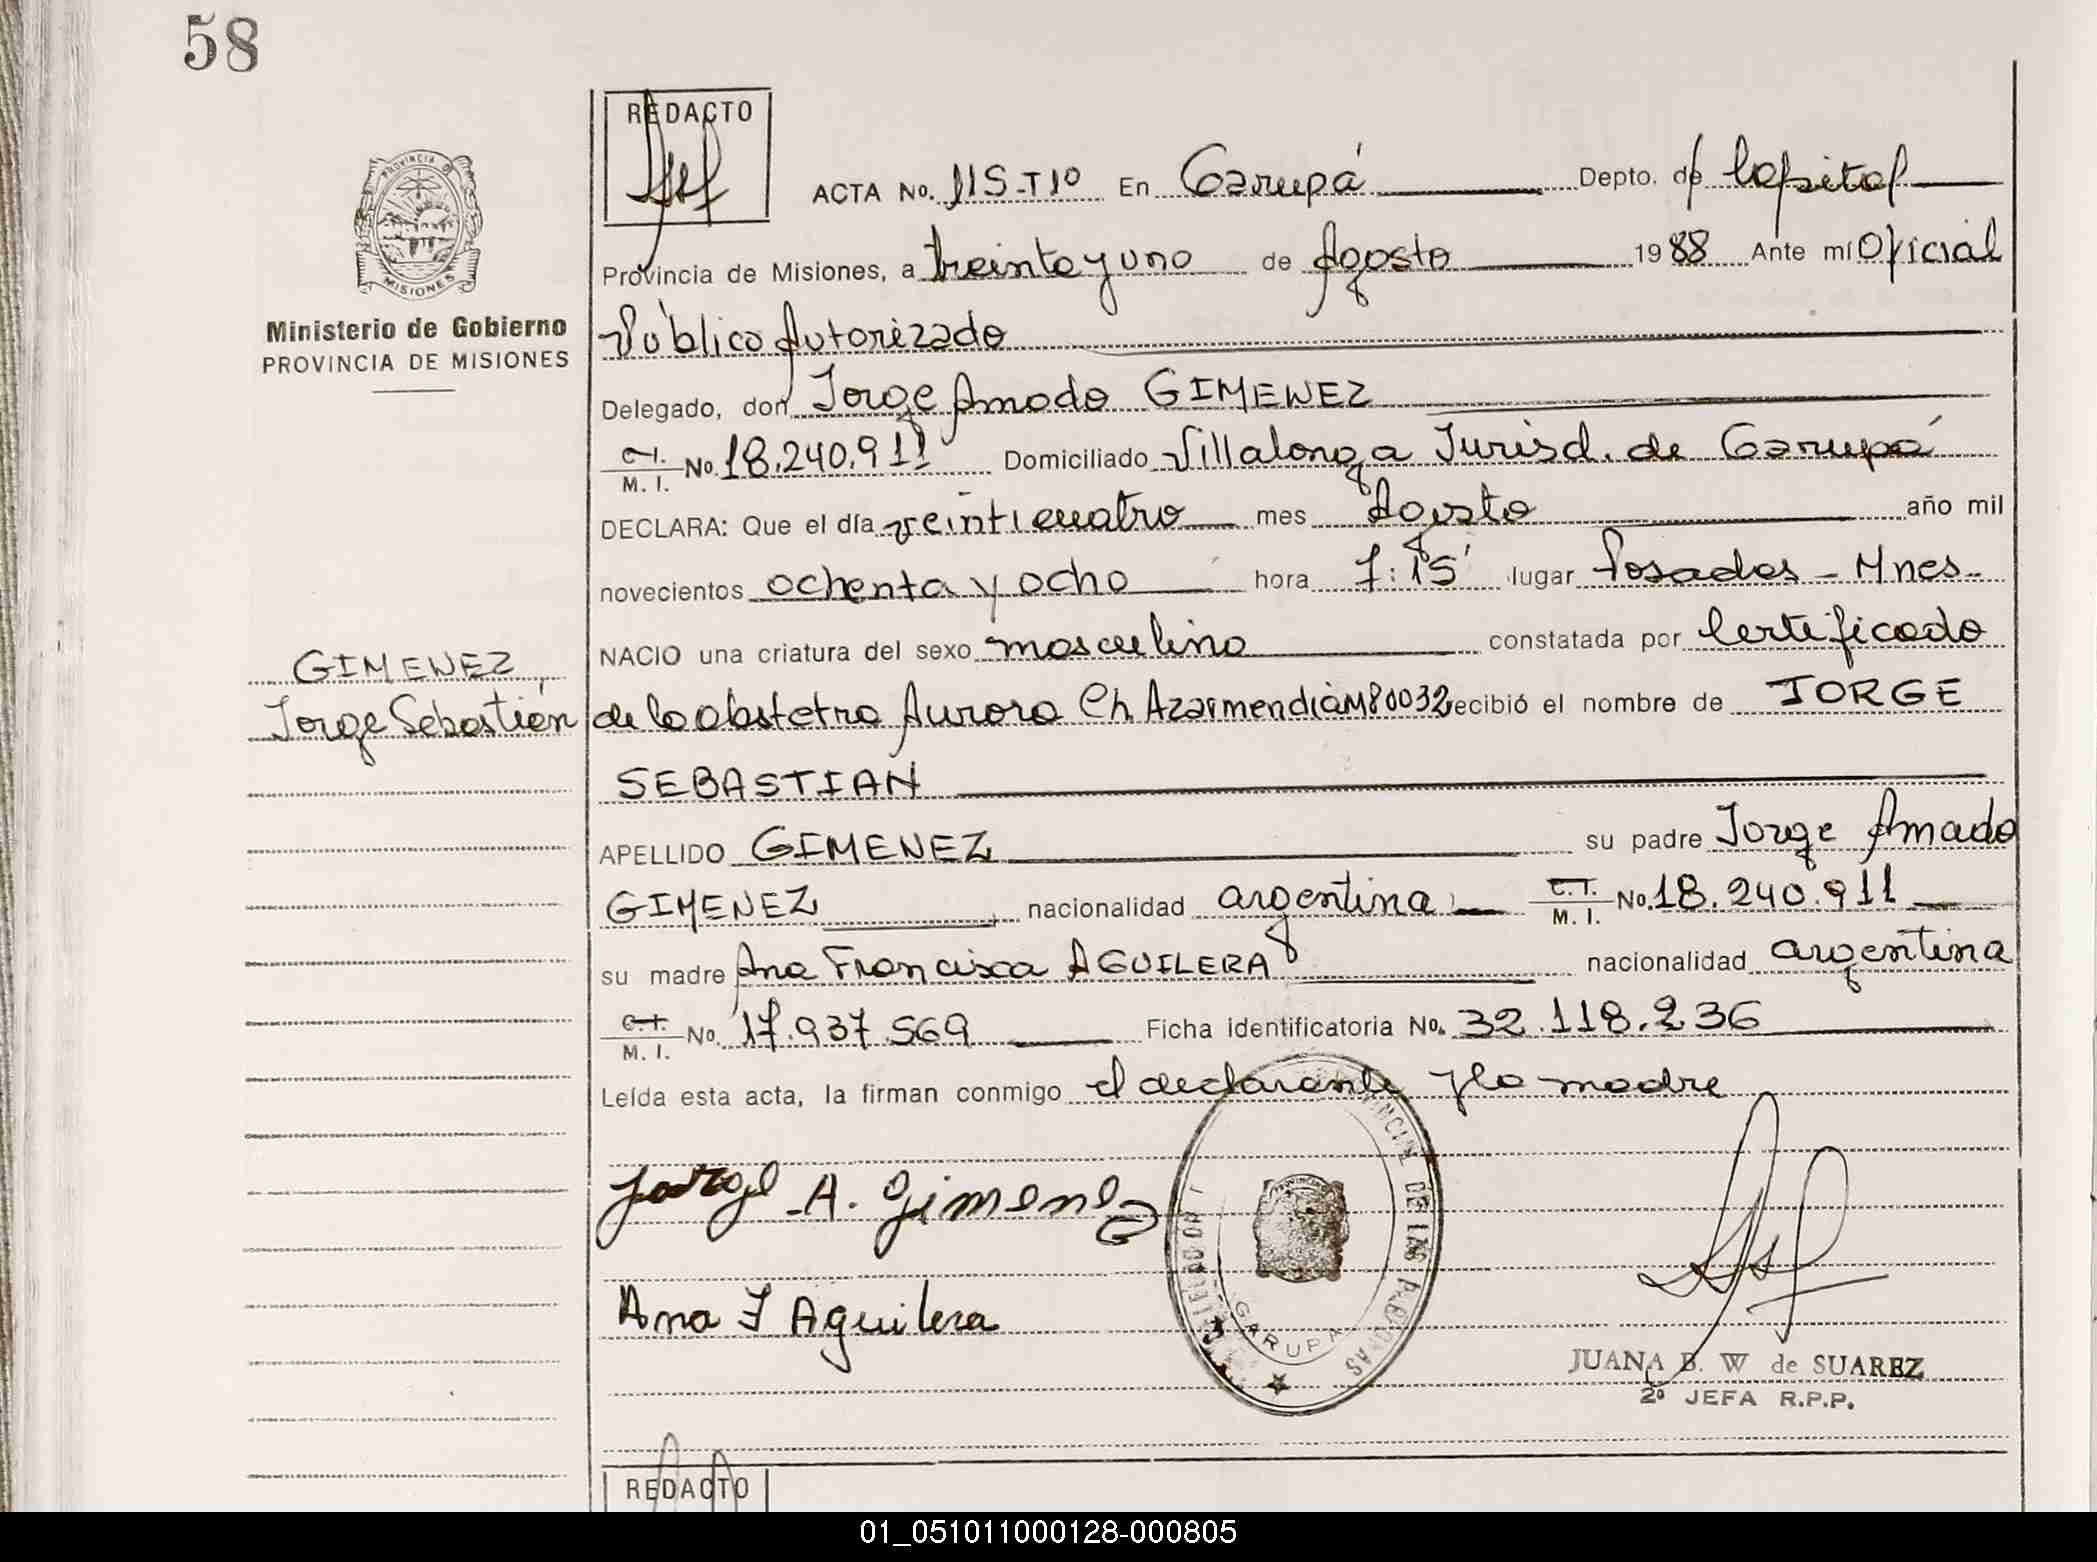 58
REDACTO
PROVINCIA DE
MISIONES
Ministerio de Gobierno
PROVINCIA DE MISIONES
ACTA No. 115-Tº1º En Garupá Depto. de Capital
Provincia de Misiones, a treinta y uno de Agosto 1988 Ante mí Oficial
Público Autorizado
Delegado, don Jorge Amado GIMENEZ
C.I. M.I. No. 18.240.911 Domiciliado Villalonga Jurisd. de Garupá
DECLARA: Que el día veinticuatro mes Agosto año mil
novecientos ochenta y ocho hora 7:15' lugar Posadas - Mnes.
NACIO una criatura del sexo masculino constatada por Certificado
GIMENEZ,
Jorge Sebastián
de la obstetra Aurora Ch Azarmendia M80032 recibió el nombre de JORGE
SEBASTIAN
APELLIDO GIMENEZ su padre Jorge Amado
GIMENEZ nacionalidad argentina C.I. M.I. No. 18.240.911
su madre Ana Francisca AGUILERA nacionalidad argentina
C.I. M.I. No. 17.937.569 Ficha identificatoria No. 32.118.236
Leída esta acta, la firman conmigo el declarante y la madre
Jorge A. Gimenez
Ana F Aguilera
DE LAS PERSONAS
GARUPA
JUANA B. W de SUAREZ
2º JEFA R.P.P.
REDACTO
01_051011000128-000805